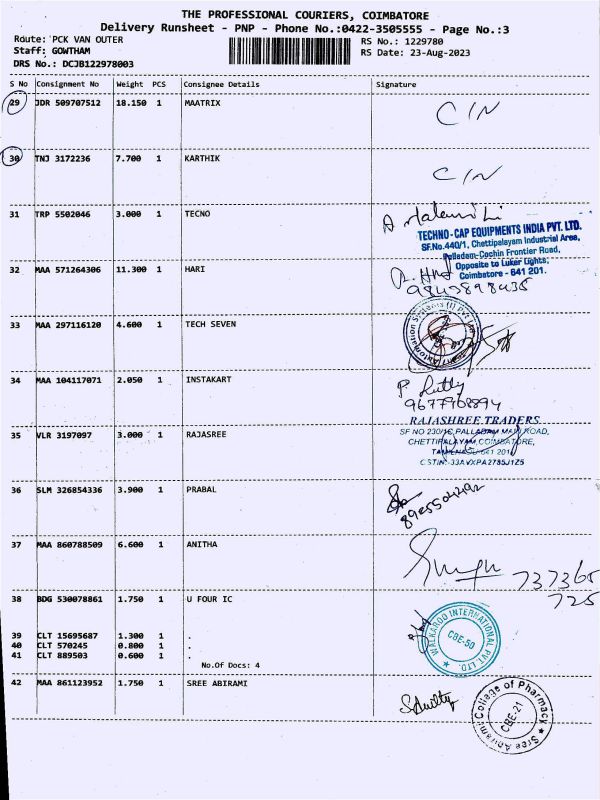 THE PROFESSIONAL COURIERS, COIMBATORE
Delivery Runsheet - PNP - Phone No.:0422-3505555 - Page No.:3
Route: PCK VAN OUTER
RS No.: 1229780
Staff: GOWTHAM
RS Date: 23-Aug-2023
DRS No.: DCJB122978003
S No Consignment No Weight PCS Consignee Details Signature
29 JDR 509707512 18.150 1 MAATRIX
C/N
30 TNJ 3172236 7.700 1 KARTHIK
C/N
31 TRP 5502046 3.000 1 TECNO
TECHNO-CAP EQUIPMENTS INDIA PVT. LTD.
SF.No.440/1, Chettipalayam Industrial Area,
Palladam-Cochin Frontier Road,
Opposite to Luker Lights,
Coimbatore - 641 201.
32 MAA 571264306 11.300 1 HARI
33 MAA 297116120 4.600 1 TECH SEVEN
34 MAA 104117071 2.050 1 INSTAKART
9677908894
35 VLR 3197097 3.000 1 RAJASREE
RAJASHREE TRADERS
SF NO 230/1C, PALLADAM MAIN ROAD,
CHETTIPALAYAM, COIMBATORE,
CSTIN:-33AVXPA2785J1Z5
36 SLM 326854336 3.900 1 PRABAL
37 MAA 860788509 6.600 1 ANITHA
737365
725
38 BDG 530078861 1.750 1 U FOUR IC
WALKAROO INTERNATIONAL PVT. LTD.
CBE-50
39 CLT 15695687 1.300 1 .
40 CLT 570245 0.800 1 .
41 CLT 889503 0.600 1 .
No.Of Docs: 4
42 MAA 861123952 1.750 1 SREE ABIRAMI
Sree Abirami College of Pharmacy
CBE-21